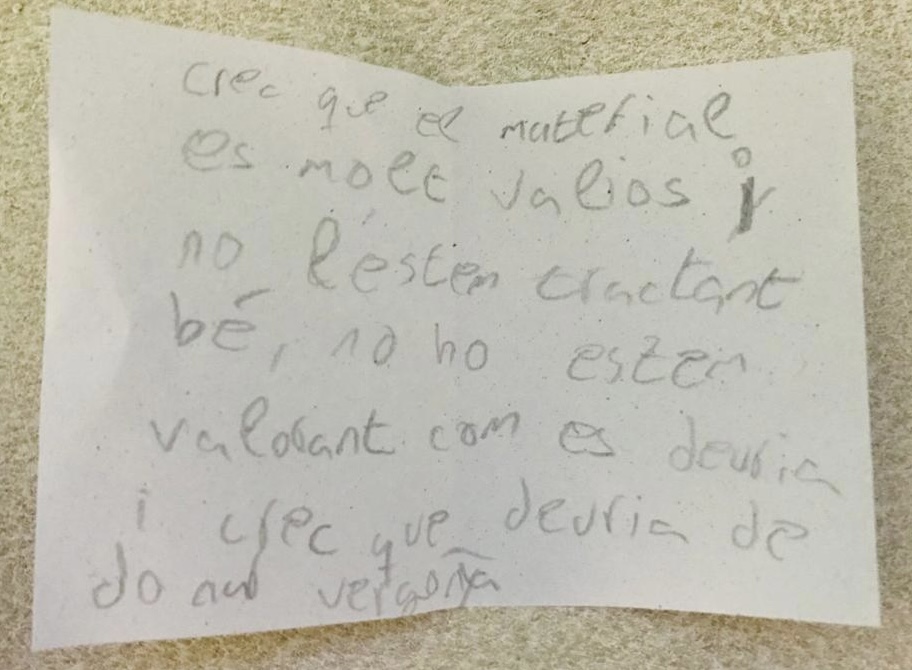 crec que el material
es molt valios i
no l'estem tractant
bé, no ho estem
valorant com es deuria
i crec que deuria de
donar vergoña